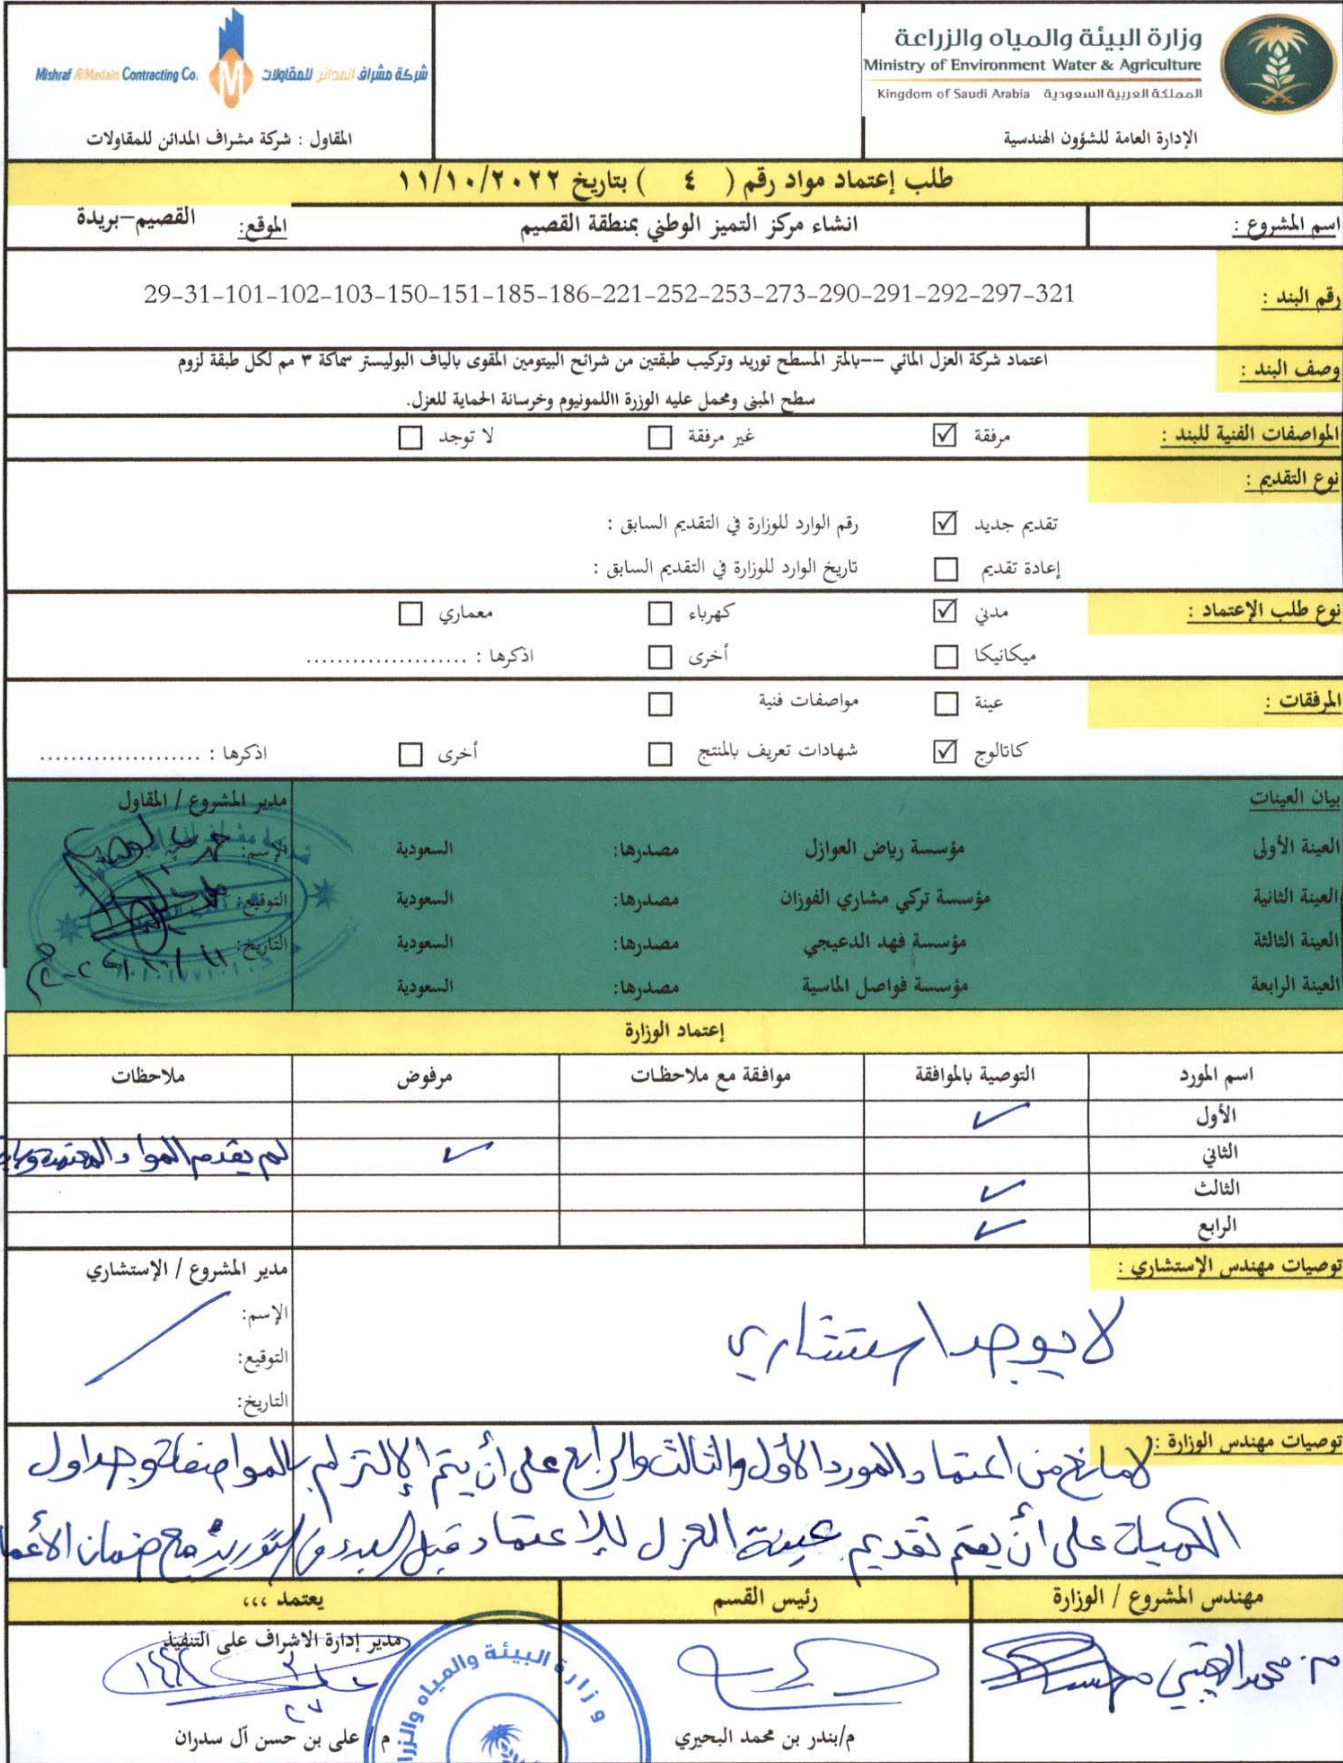 وزارة البيئة والمياه والزراعة
Ministry of Environment Water & Agriculture
المملكة العربية السعودية Kingdom of Saudi Arabia
الإدارة العامة للشؤون الهندسية
شركة مشراف المدائن للمقاولات Mishraf AlMadain Contracting Co.
المقاول : شركة مشراف المدائن للمقاولات
طلب إعتماد مواد رقم ( ٤ ) بتاريخ ١١/١٠/٢٠٢٢
اسم المشروع : انشاء مركز التميز الوطني بمنطقة القصيم الموقع: القصيم-بريدة
رقم البند : 29-31-101-102-103-150-151-185-186-221-252-253-273-290-291-292-297-321
وصف البند : اعتماد شركة العزل المائي --بالمتر المسطح توريد وتركيب طبقتين من شرائح البيتومين المقوى بالياف البوليستر سماكة ٣ مم لكل طبقة لزوم
سطح المبنى ومحمل عليه الوزرة االلمونيوم وخرسانة الحماية للعزل.
المواصفات الفنية للبند : مرفقة ☑ غير مرفقة ☐ لا توجد ☐
نوع التقديم :
تقديم جديد ☑ رقم الوارد للوزارة في التقديم السابق :
إعادة تقديم ☐ تاريخ الوارد للوزارة في التقديم السابق :
نوع طلب الإعتماد : مدني ☑ كهرباء ☐ معماري ☐
ميكانيكا ☐ أخرى ☐ اذكرها : .....................
المرفقات : عينة ☐ مواصفات فنية ☐
كاتالوج ☑ شهادات تعريف بالمنتج ☐ أخرى ☐ اذكرها : .....................
بيان العينات مدير المشروع / المقاول
العينة الأولى مؤسسة رياض العوازل مصدرها: السعودية الإسم:
العينة الثانية مؤسسة تركي مشاري الفوزان مصدرها: السعودية التوقيع:
العينة الثالثة مؤسسة فهد الدعيجي مصدرها: السعودية التاريخ:
العينة الرابعة مؤسسة فواصل الماسية مصدرها: السعودية
إعتماد الوزارة
اسم المورد التوصية بالموافقة موافقة مع ملاحظات مرفوض ملاحظات
الأول ✓
الثاني ✓ لم يقدم المواد المعتمدة
الثالث ✓
الرابع ✓
توصيات مهندس الإستشاري : مدير المشروع / الإستشاري
لا يوجد استشاري
الإسم:
التوقيع:
التاريخ:
توصيات مهندس الوزارة :
لا مانع من اعتماد المورد الأول والثالث والرابع على أن يتم الإلتزام بالمواصفات وجداول
الكميات على أن يتم تقديم عينة العزل للإعتماد قبل البدء في التوريد مع ضمان الأعما
مهندس المشروع / الوزارة رئيس القسم يعتمد ،،،
مدير إدارة الاشراف على التنفيذ
م. محمد
م/بندر بن محمد البحيري
م / على بن حسن آل سدران
وزارة البيئة والمياه والزرا